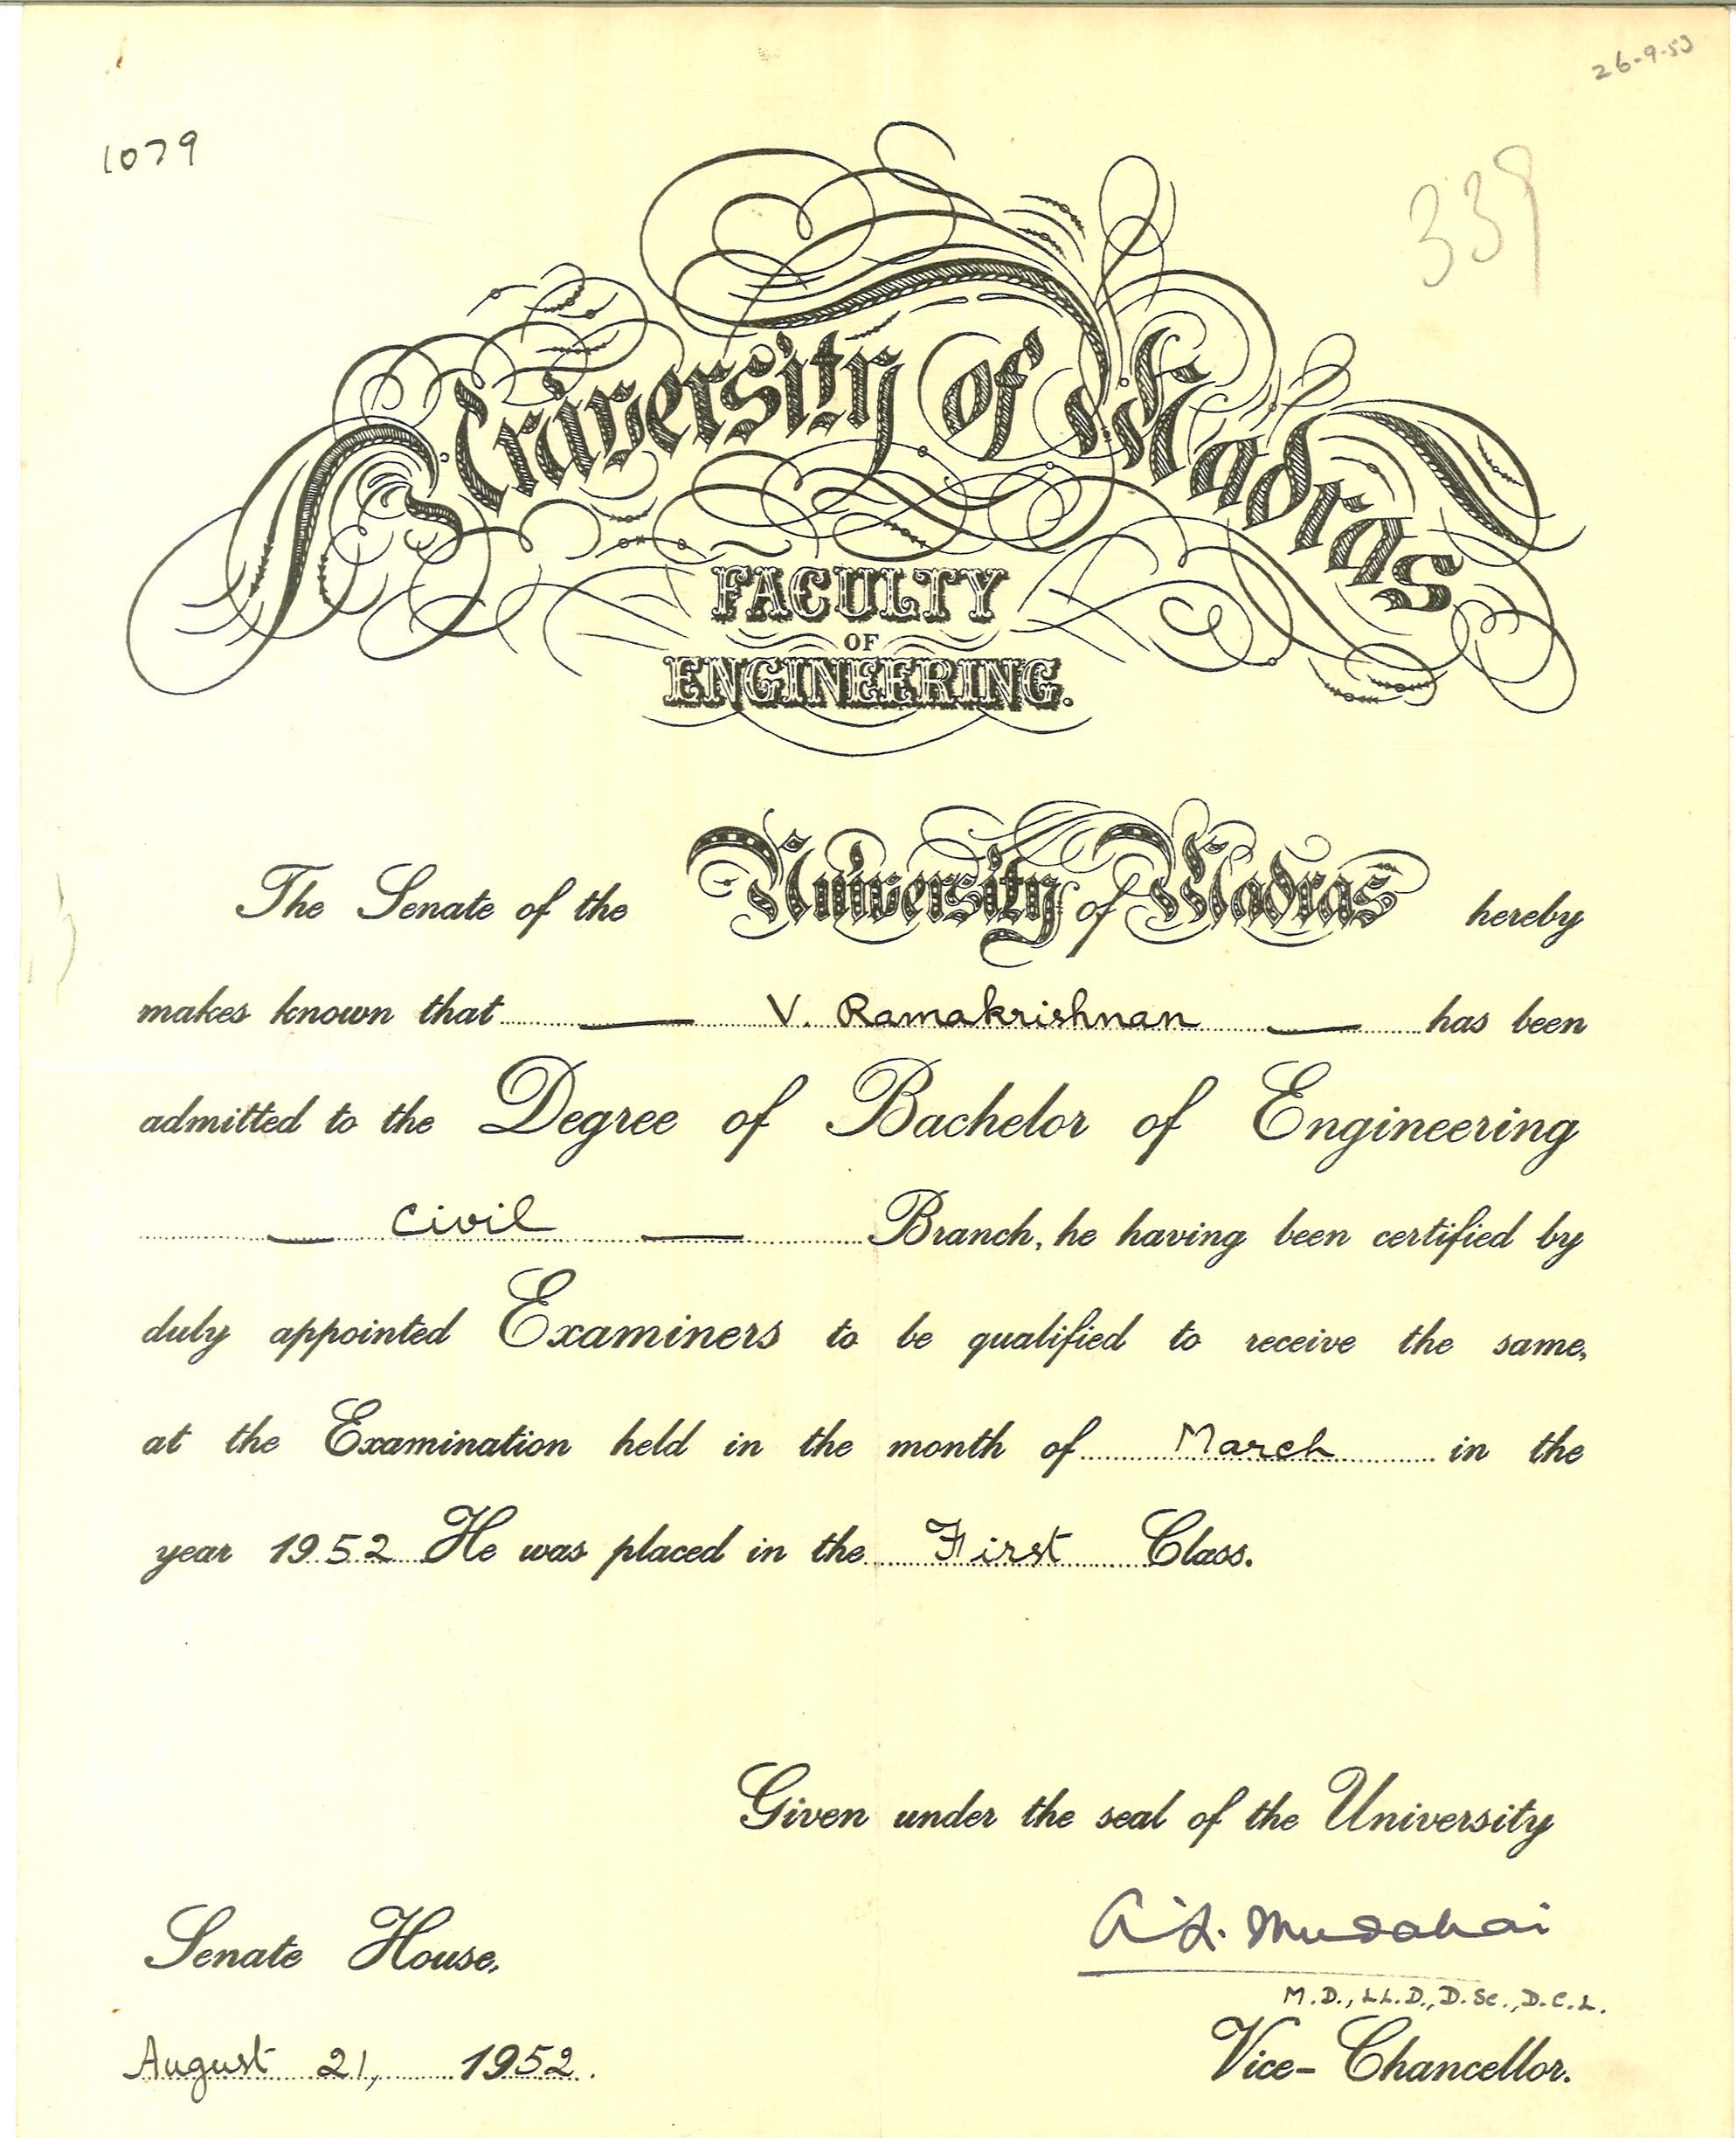 26-9-53
1079
339
University of Madras
FACULTY
OF
ENGINEERING.
The Senate of the University of Madras hereby
makes known that V. Ramakrishnan has been
admitted to the Degree of Bachelor of Engineering
Civil Branch, he having been certified by
duly appointed Examiners to be qualified to receive the same,
at the Examination held in the month of March in the
year 1952 He was placed in the First Class.
Given under the seal of the University
A. L. Mudaliar
Senate House,
M.D., LL.D., D.Sc., D.C.L.
August 21, 1952.
Vice-Chancellor.